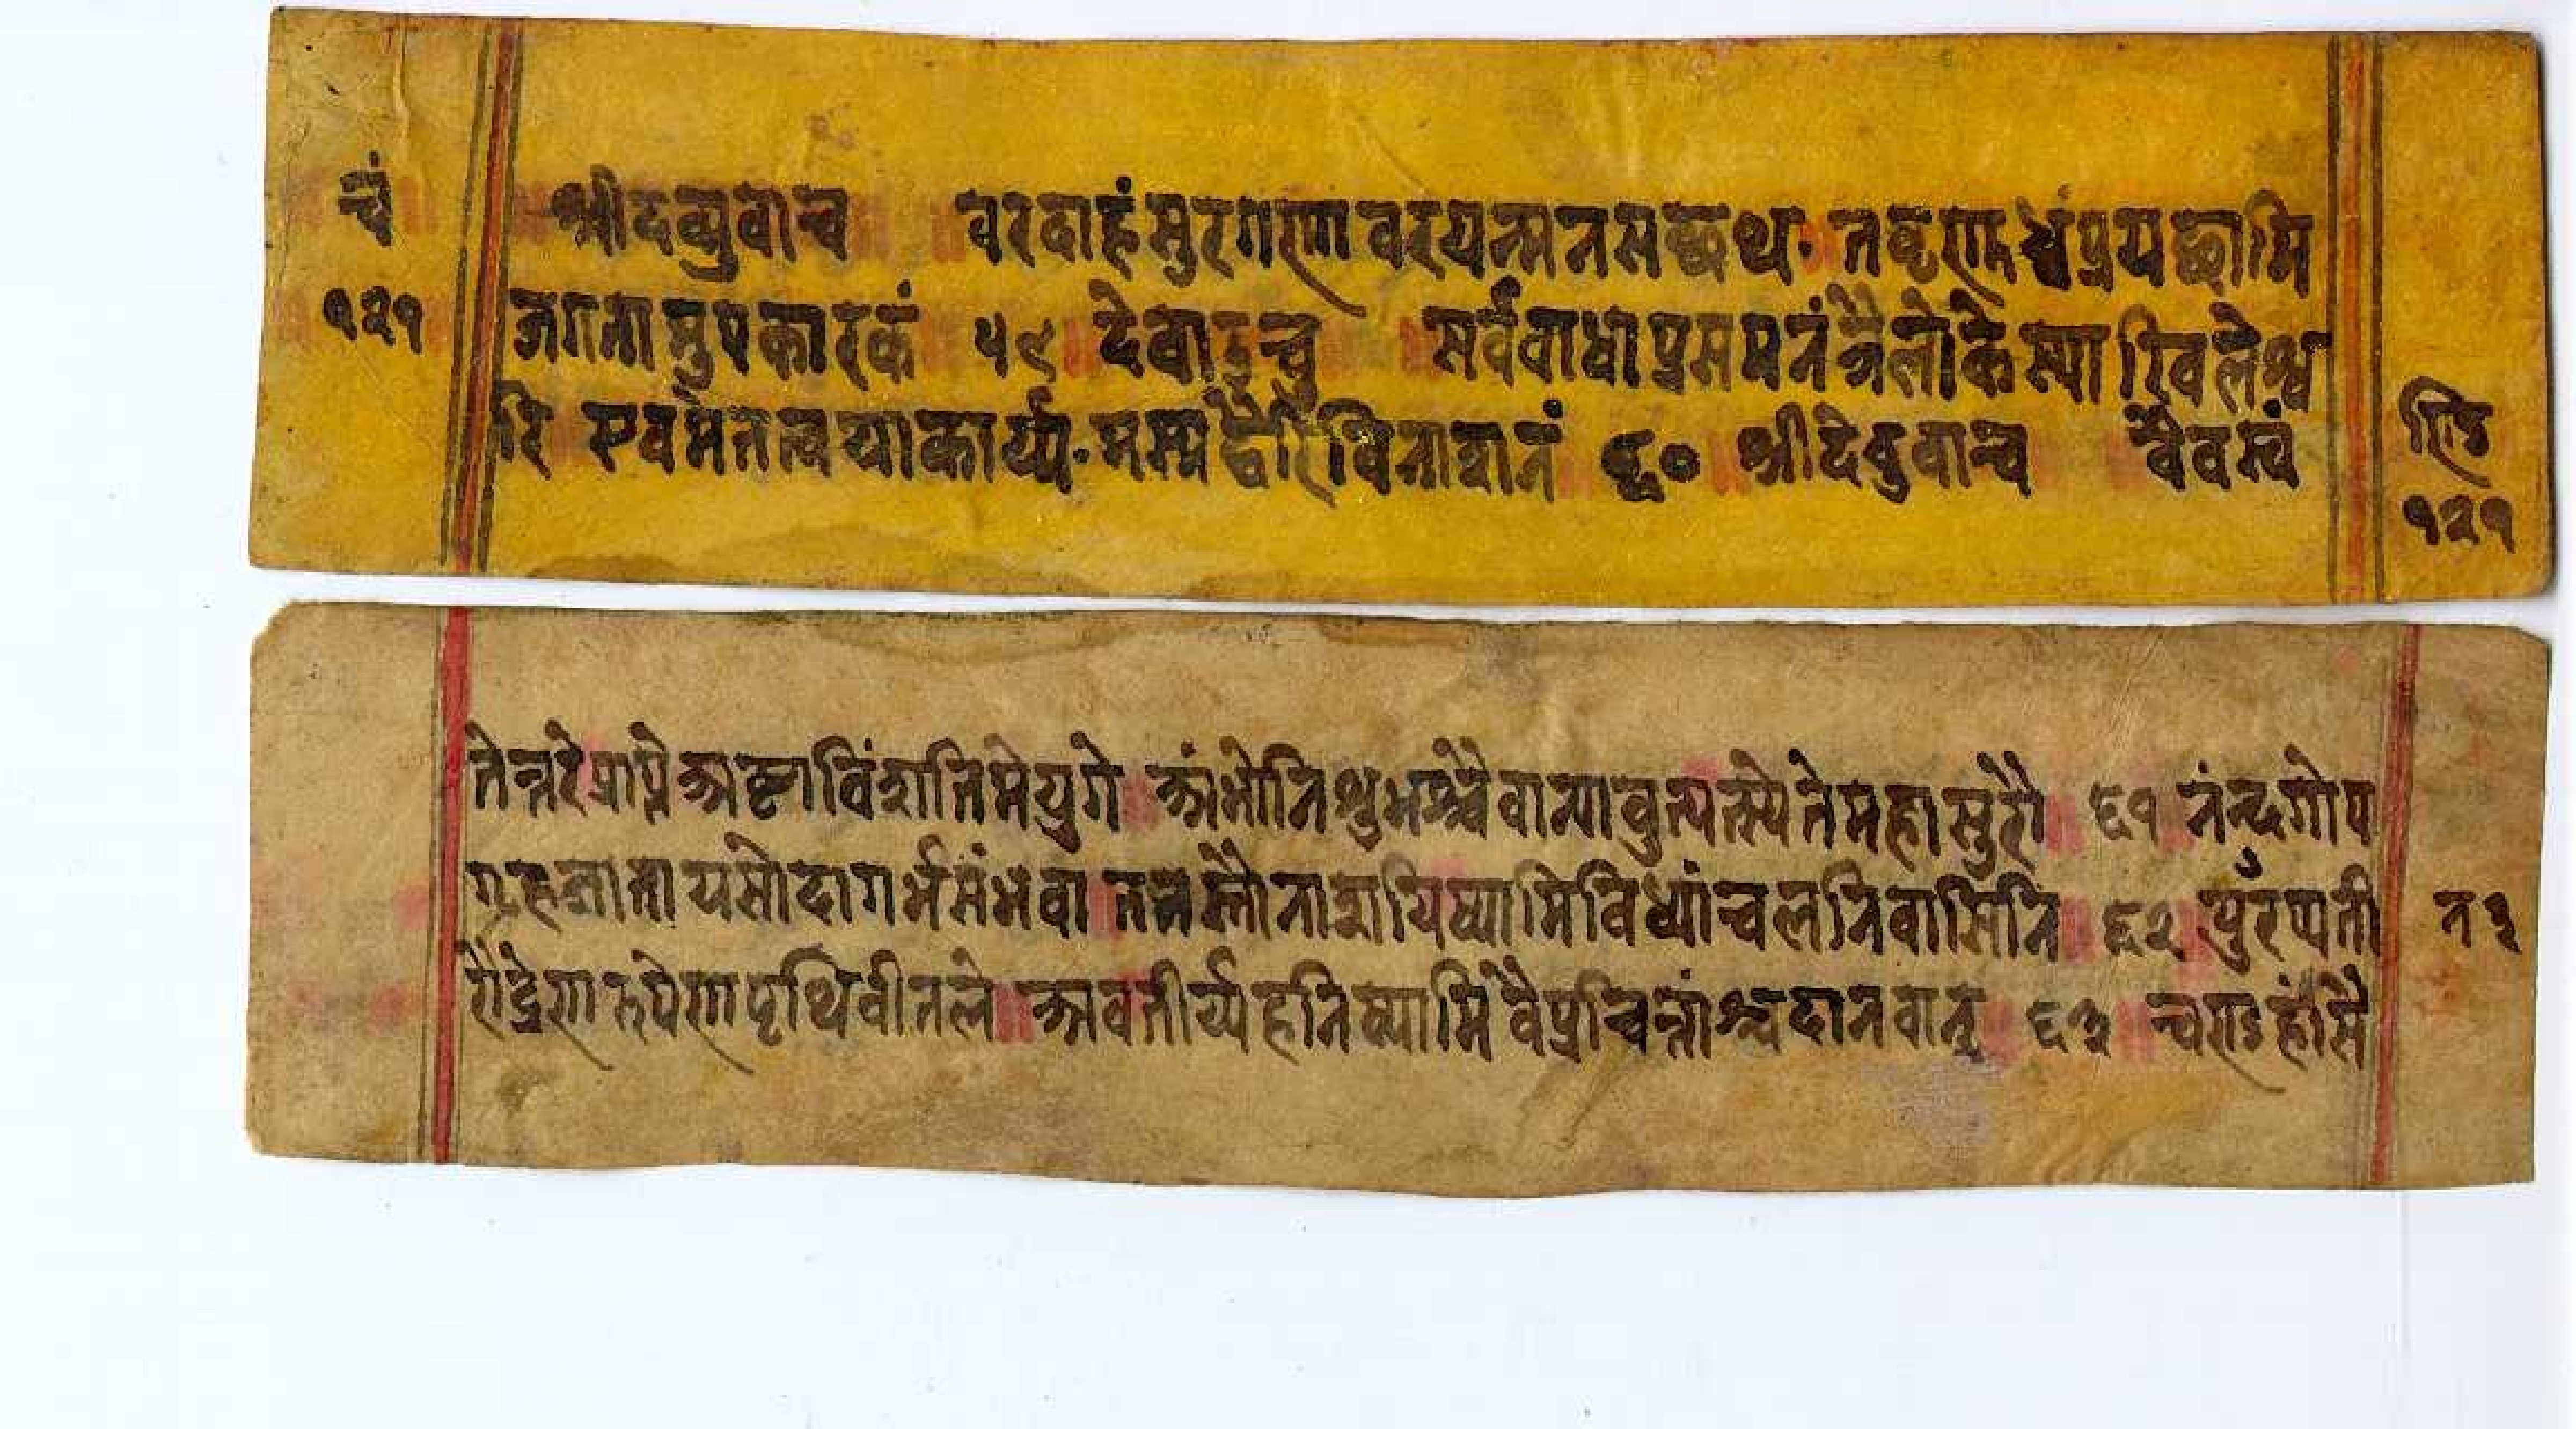 चं
१२१
श्रीदव्युवाच वरदाहंसुरगणा वरयन्मनसेछथ तंवृणुध्वंप्रयछामि
जगतामुपकारकं ५९ देवाउचु सर्ववाधाप्रसमनंत्रैलोकेस्याखिलेश्व
रि एवमेतत्वयाकार्य्य मस्मद्वैरिविनाशनं ६० श्रीदेवुवाच वैवस्वं
ण्डि
१२१
तेन्तरेप्राप्तेअष्टाविंशतिमेयुगे शुंभोनिशुभश्चैवान्यावुत्पत्स्येतेमहासुरौ ६१ नंन्दगोप
गृहेजाता यसोदागर्भसंभवा ततस्तौनाशयिष्यामिविध्यांचलनिवासिनि ६२ पुंरप्यती
रौद्रेणरूपेणपृथिवीतले अवतीर्य्यहनिष्यामिवैप्रचित्तांश्चदानवान् ६३
त ३